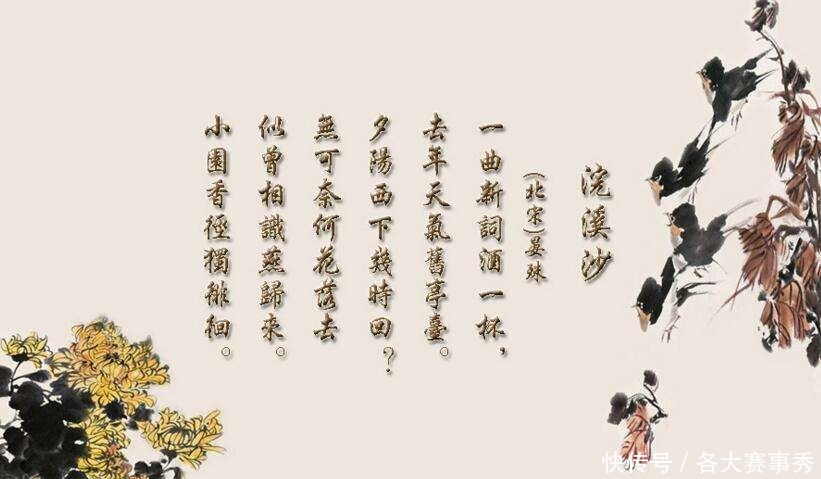 浣溪沙
(北宋)晏殊
一曲新詞酒一杯，
去年天氣舊亭臺。
夕陽西下幾時回？
無可奈何花落去
似曾相識燕歸來。
小園香徑獨徘徊。
快传号／各大赛事秀